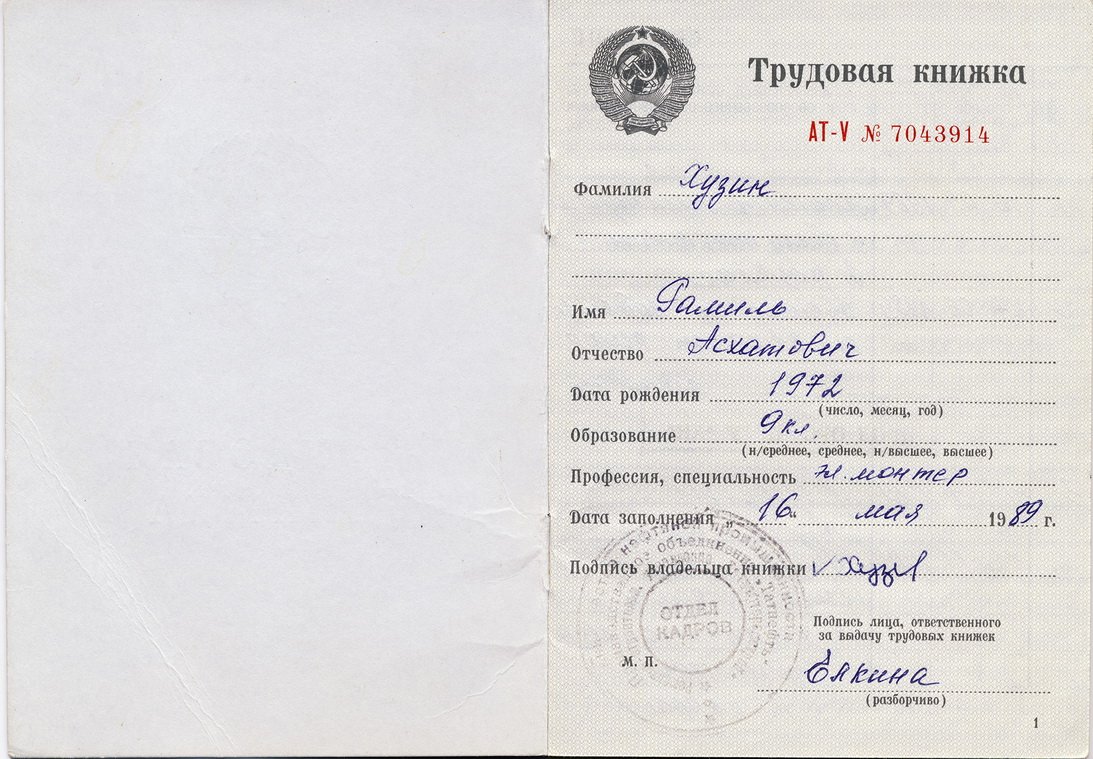 Трудовая книжка
АТ-V № 7043914
Фамилия Хузин
Имя Рамиль
Отчество Асхатович
Дата рождения 1972
(число, месяц, год)
Образование 9 кл.
(н/среднее, среднее, н/высшее, высшее)
Профессия, специальность эл. монтер
Дата заполнения „ 16 “ мая 1989 г.
Подпись владельца книжки
нефтяной промышленности
объединение „Татнефть“
ОТДЕЛ
КАДРОВ
Подпись лица, ответственного
за выдачу трудовых книжек
М. П.
Елкина
(разборчиво)
1